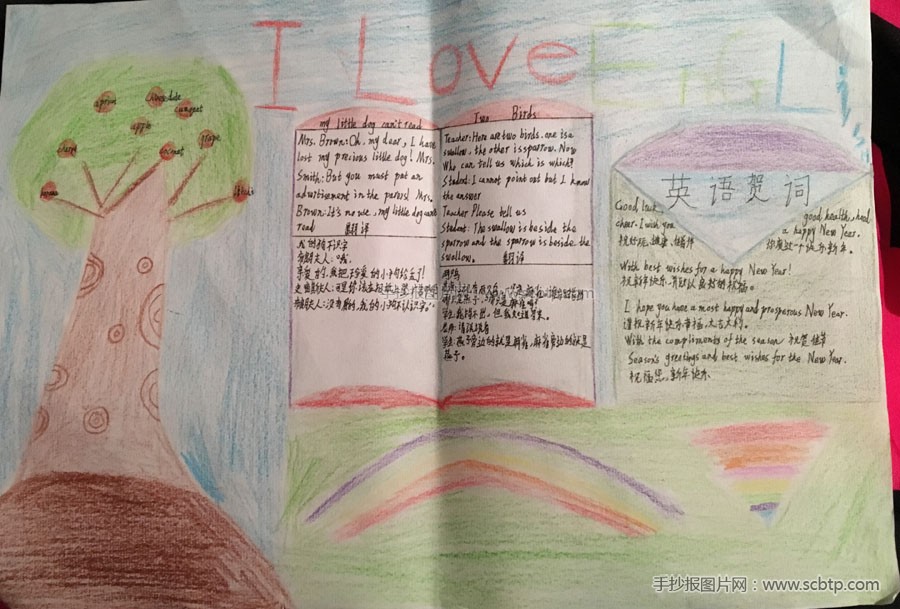 I Love
apple
grape
my little dog can't read
Mrs. Brown: Oh, my dear, I have
lost my precious little dog! Mrs.
Smith: But you must put an
advertisement in the papers! Mrs.
Brown: It's no use, my little dog can't
read 翻译
我的狗不识字
布朗夫人：哦，
亲爱的，我把珍爱的小狗给丢了！
Two Birds
Teacher: Here are two birds. one is a
swallow, the other is sparrow. Now
Who can tell us which is which?
Student: I cannot point out but I know
the answer
Teacher Please tell us
Student: The swallow is beside the
sparrow and the sparrow is beside the
swallow. 翻译
老师：请说说看
学生：燕子旁边的就是麻雀，麻雀旁边的就是
燕子。
英语贺词
Good luck, good health, hood
cheer. I wish you a happy New Year.
祝好运、健康、
你有过一个快乐新年。
With best wishes for a happy New Year!
祝新年快乐，并致以良好的祝福。
I hope you have a most happy and prosperous New Year.
谨祝新年快乐幸福，大吉大利。
With the compliments of the season 祝贺佳节
Season's greetings and best wishes for the New Year.
祝福您，新年快乐
手抄报图片网：www.scbtp.com